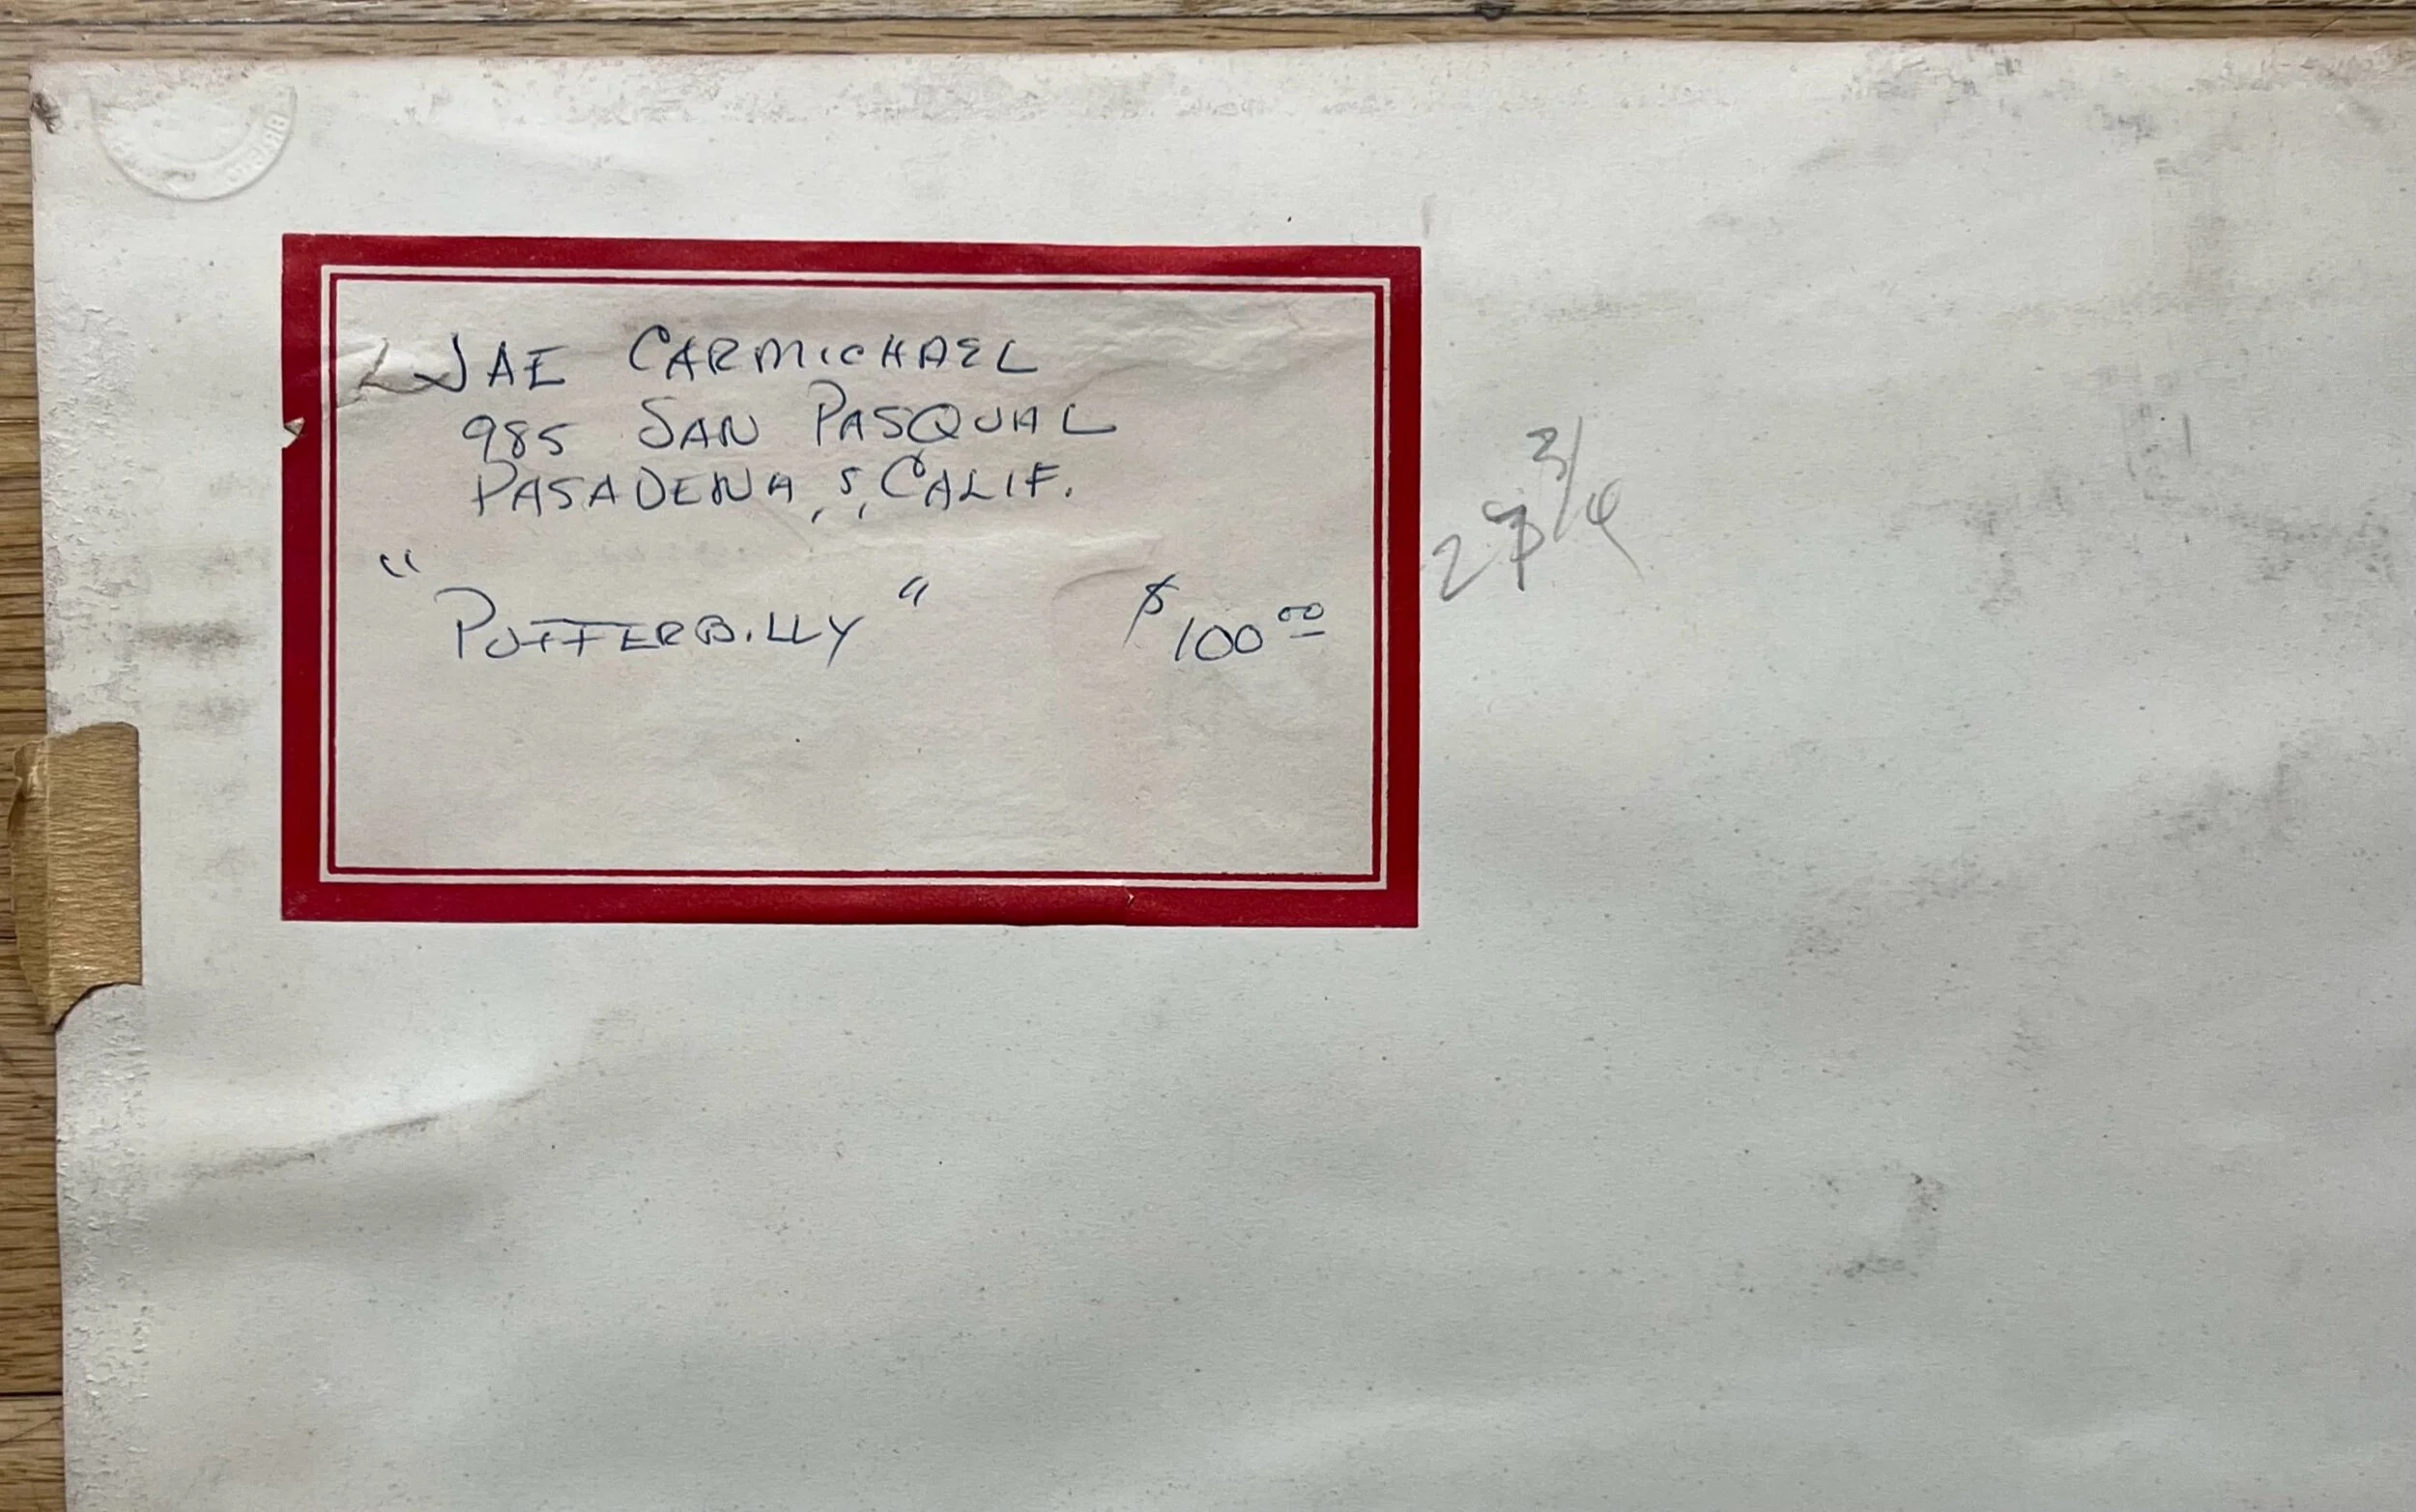 JAE CARMICHAEL
985 SAN PASQUAL
PASADENA, 5, CALIF.
"PUFFERBILLY" $100.00
3/4